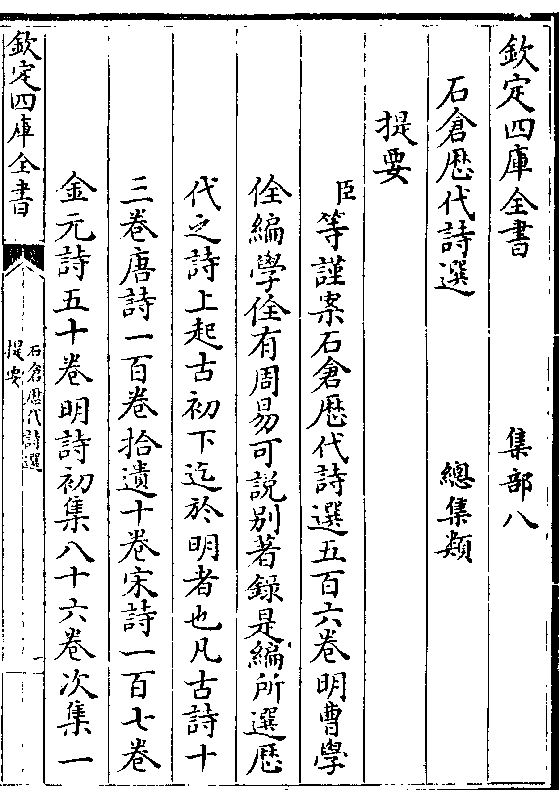 欽定四庫全書　集部八
石倉歴代詩選　總集類
提要
臣等謹案石倉歴代詩選五百六卷明曹學
佺編學佺有周易可説别著錄是編所選歴
代之詩上起古初下迄於明者也凡古詩十
三卷唐詩一百卷拾遺十卷宋詩一百七卷
金元詩五十卷明詩初集八十六卷次集一
欽定四庫全書
石倉歴代詩選
提要